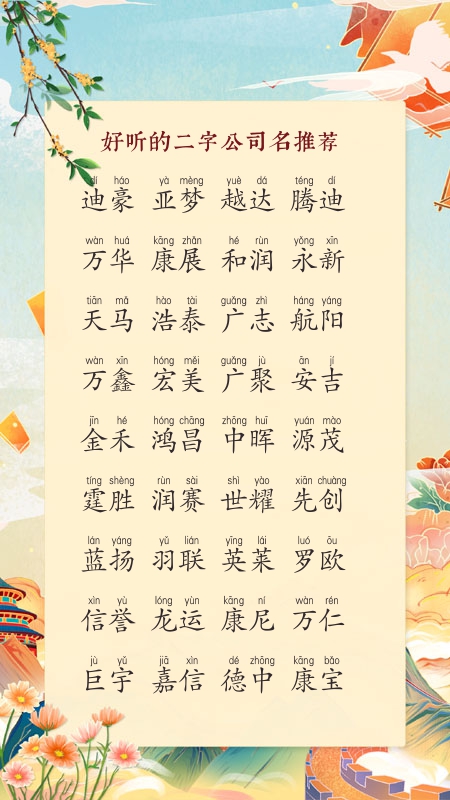 好听的二字公司名推荐
dí háo yà mèng yuè dá téng dí
迪豪 亚梦 越达 腾迪
wàn huá kāng zhǎn hé rùn yǒng xīn
万华 康展 和润 永新
tiān mǎ hào tài guǎng zhì háng yáng
天马 浩泰 广志 航阳
wàn xīn hóng měi guǎng jù ān jí
万鑫 宏美 广聚 安吉
jīn hé hóng chāng zhōng huī yuán mào
金禾 鸿昌 中晖 源茂
tíng shèng rùn sài shì yào xiān chuàng
霆胜 润赛 世耀 先创
lán yáng yǔ lián yīng lái luó ōu
蓝扬 羽联 英莱 罗欧
xìn yù lóng yùn kāng ní wàn rén
信誉 龙运 康尼 万仁
jù yǔ jiā xìn dé zhōng kāng bǎo
巨宇 嘉信 德中 康宝